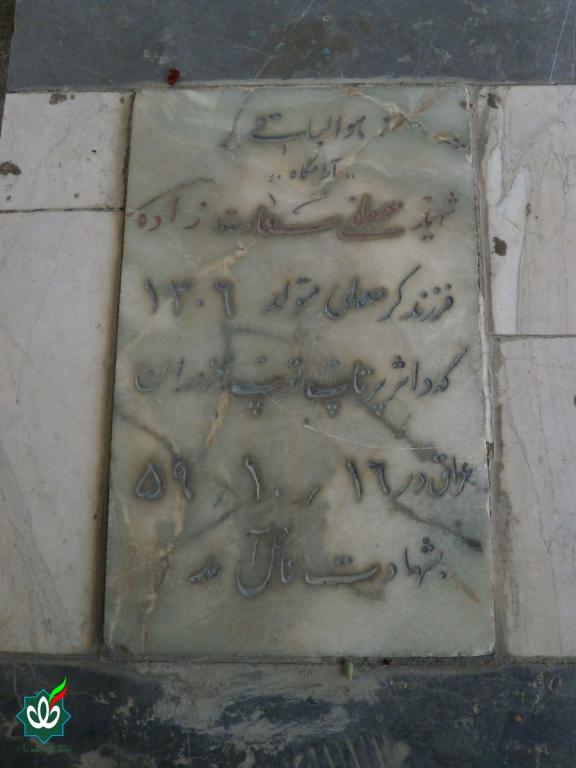 هوالباقی
آرامگاه
شهید مصطفی سعادت زاده
فرزند کرمعلی متولد ۱۳۰۶
که در اثر پرتاب توپ مزدوران
عراق در ۱۶ / ۱۰ / ۵۹
بشهادت نائل آمد